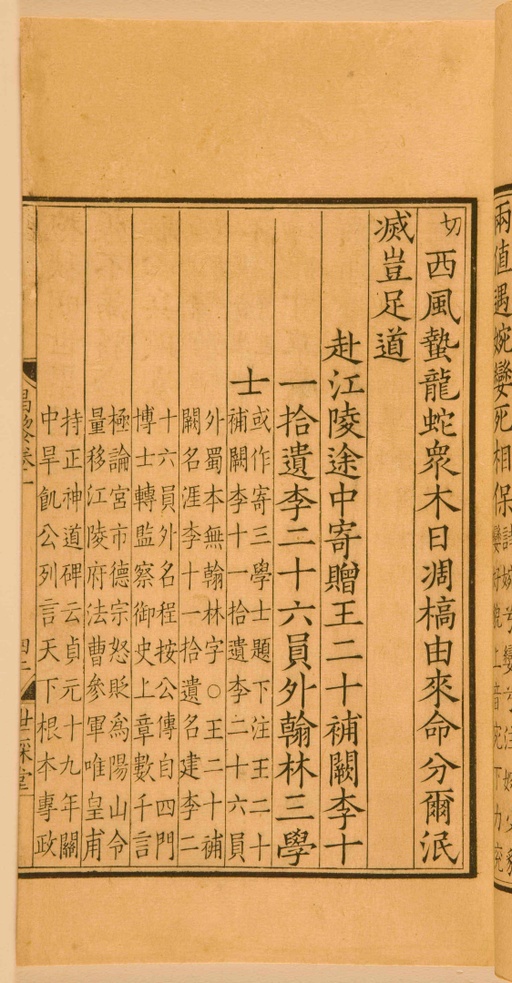 兩值遇婉孌死相保
切西風蟄龍蛇衆木日凋槁由來命分爾泯
滅豈足道
赴江陵途中寄贈王二十補闕李十
一拾遺李二十六員外翰林三學
士
或作寄三學士題下注王二十
補闕李十一拾遺李二十六員
外蜀本無翰林字○王二十補
闕名涯李十一拾遺名建李二
十六員外名程按公傳自四門
博士轉監察御史上章數千言
極論宮市德宗怒貶爲陽山令
量移江陵府法曹參軍唯皇甫
持正神道碑云貞元十九年關
中旱飢公列言天下根本專政
世綵堂